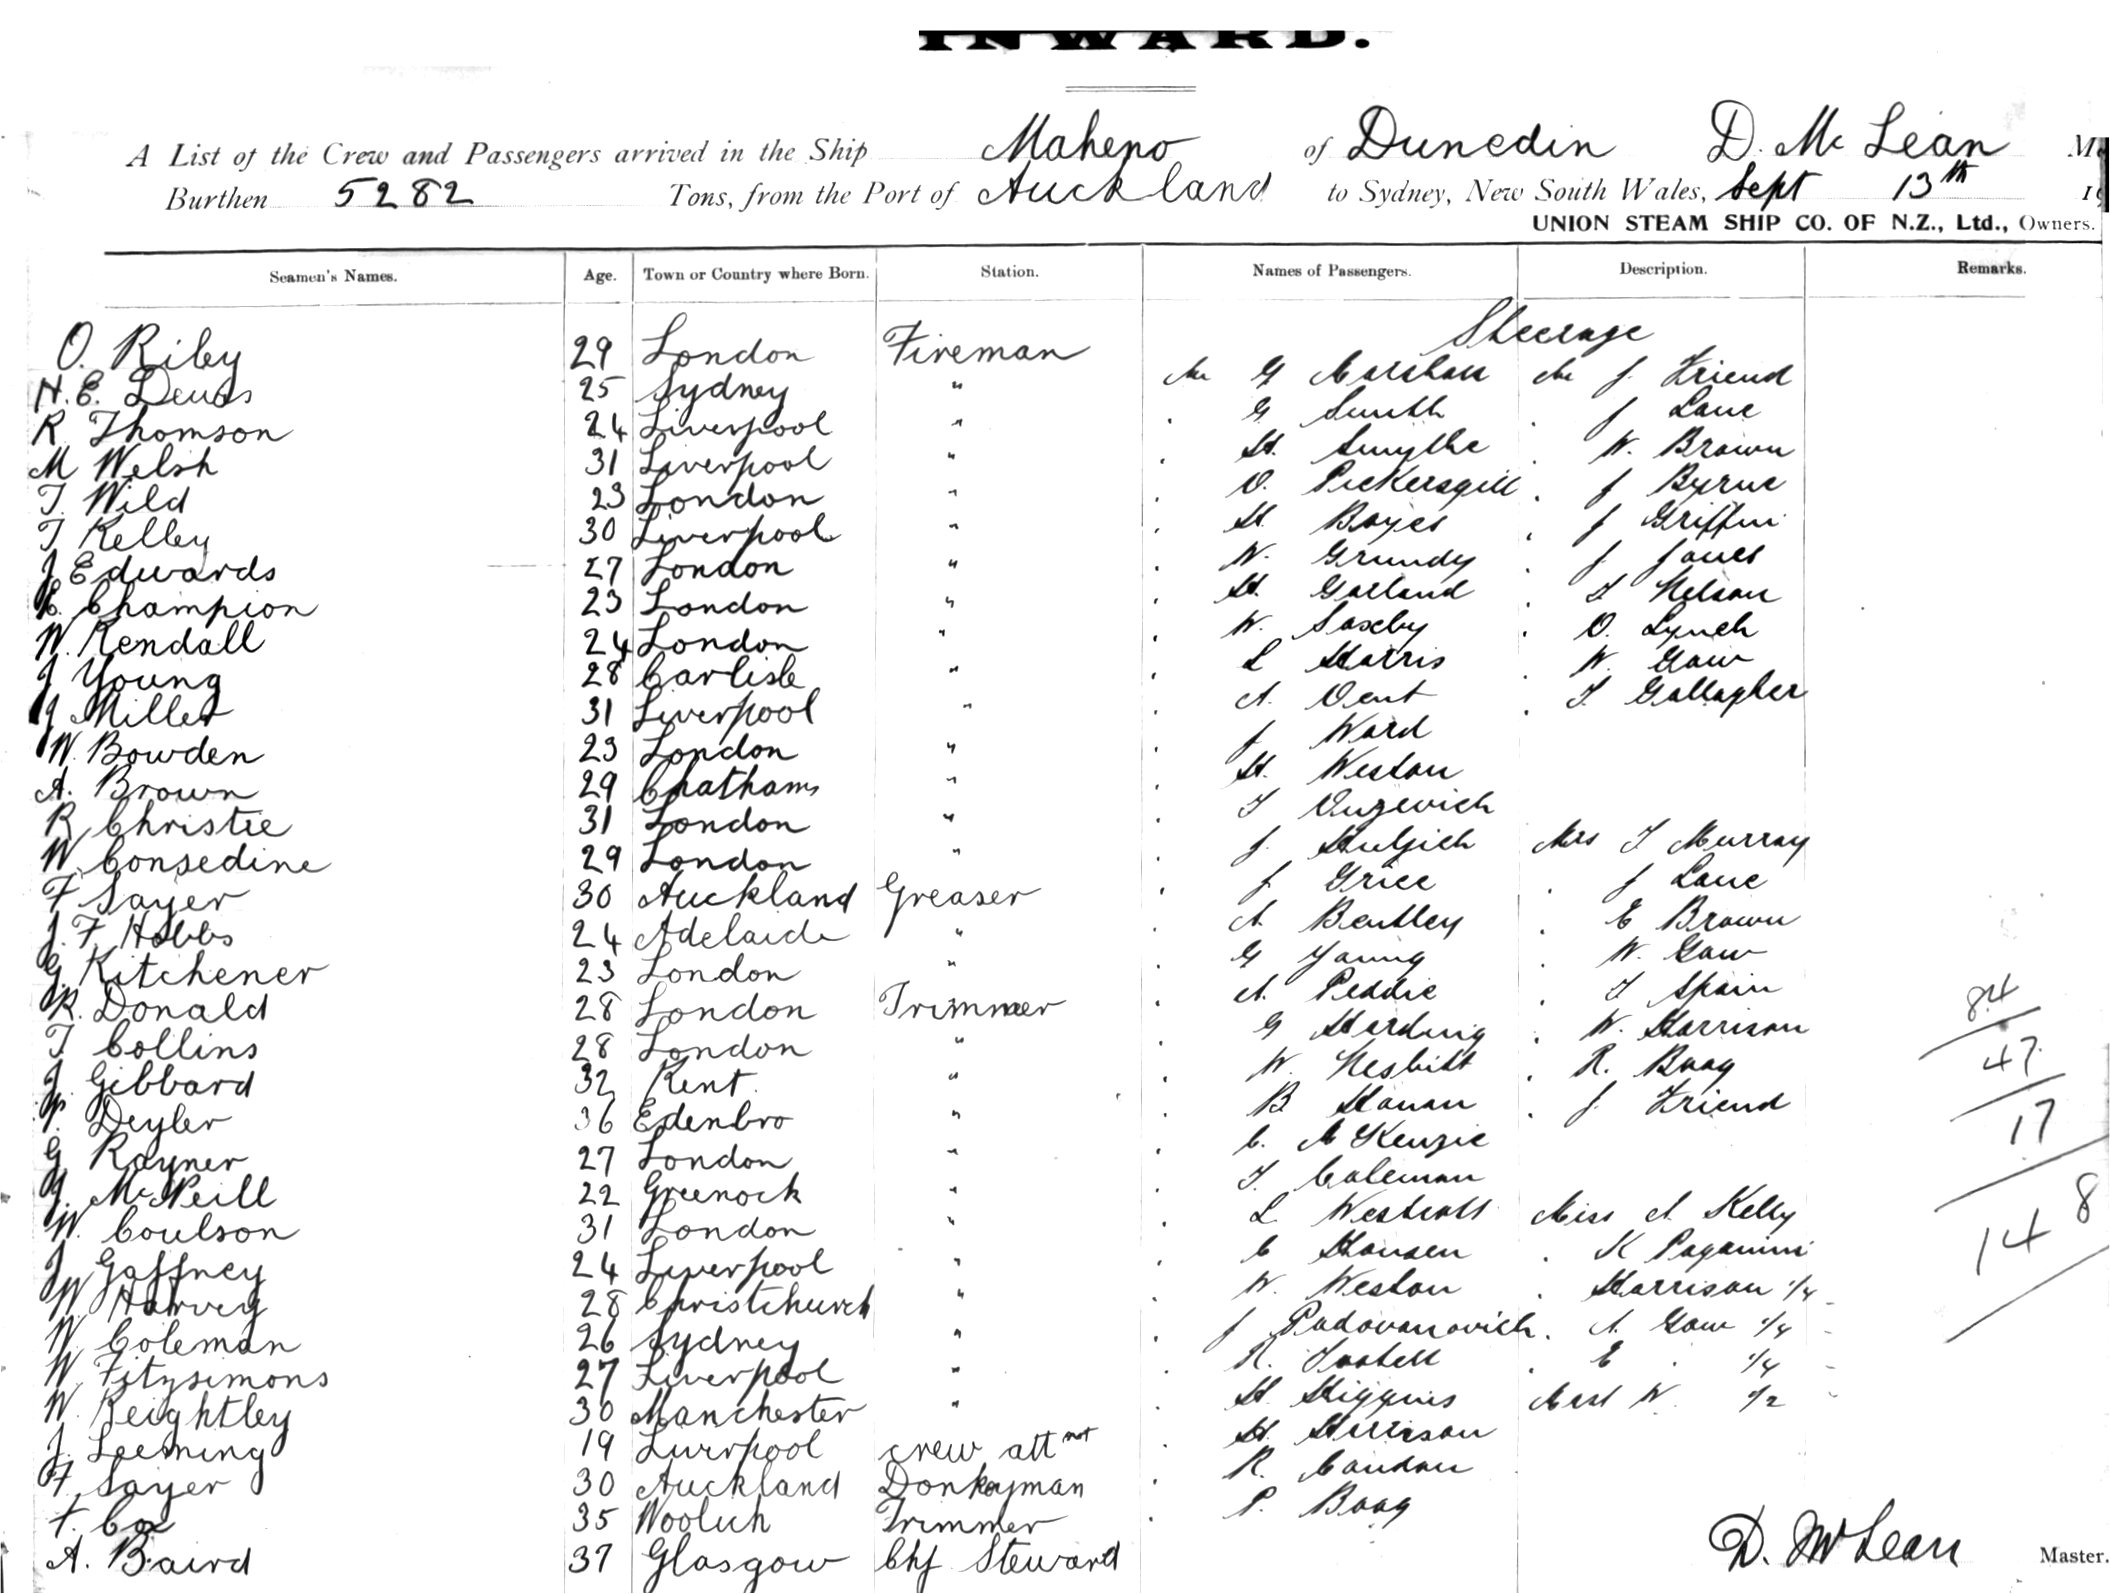 INWARD.
A List of the Crew and Passengers arrived in the Ship Maheno of Dunedin D. Mc Lean
Burthen 5282 Tons, from the Port of Auckland to Sydney, New South Wales, Sept 13th
UNION STEAM SHIP CO. OF N.Z., Ltd., Owners.
Seamen's Names. Age. Town or Country where Born. Station. Names of Passengers. Description. Remarks.
Steerage
O. Riley 29 London Fireman
H. E. 25 Sydney " Mr G Marshall Mr J. Friend
R Thomson 24 Liverpool " . G Smith . J Lane
M Welsh 31 Liverpool " . H. Smythe . W. Brown
T. Wild 23 London " . O. Pickersgill . J Byrne
T Kelley 30 Liverpool " . H. Boyes . J Griffin
J Edwards 27 London " . W. Grundy . J Jones
Champion 23 London " . H. Garland . T Nelson
W. Kendall 24 London " . W. Saxby . O. Lynch
J Young 28 Carlisle " . L Harris . W. Gaw
J Miller 31 Liverpool " . A. Vent . T. Gallagher
W. Bowden 23 London " . J Ward
A. Brown 29 Chathams " . H. Weston
R Christie 31 London " . T
W. Consedine 29 London " . J. Mrs T Murray
F Sayer 30 Auckland Greaser . J. Grice . J Lane
J. F. Hobbs 24 Adelaide " . A. Bentley . E Brown
G Kitchener 23 London " . G Young . W. Gaw
R. Donald 28 London Trimmer . A. Peddie . T Spain 84
T Collins 28 London " . G Harding . W. Harrison
J Gibbard 32 Kent " . W. Nesbitt . R. Boag 47
Deyler 36 Edenbro " . B Hanan . J. Friend
G Rayner 27 London " . C. McKenzie 17
J. McNeill 22 Greenock " . T. Coleman
W. Coulson 31 London " . L Westcott Miss A Kelly 8
J Gaffney 24 Liverpool " . C Hansen . K Paganini 14
W Harvey 28 Christchurch " . W. Weston . Harrison 1/4
W Coleman 26 Sydney " . J Padovanovich . A. Gaw 1/4
W Fitzsimons 27 Liverpool " . R. . E . 1/4
W. Keightley 30 Manchester " . H. Higgins Mast W. 1/2
J. Leeming 19 Liverpool crew att not . H.
F. Sayer 30 Auckland Donkeyman . R. Condon
F. Cox 35 Woolich Trimmer . P. Boag
A. Baird 37 Glasgow Chf Steward
D. McLean Master.